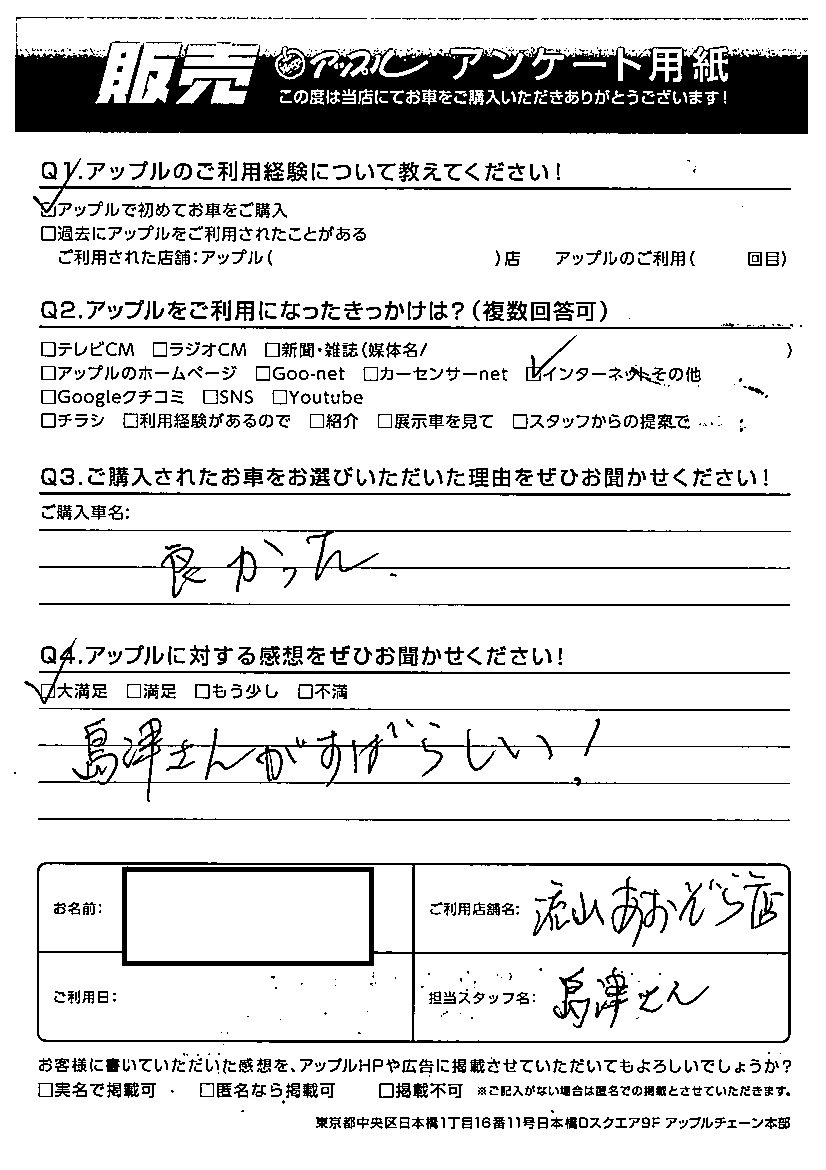 販売 アップル アンケート用紙
この度は当店にてお車をご購入いただきありがとうございます!
Q1.アップルのご利用経験について教えてください!
☑アップルで初めてお車をご購入
□過去にアップルをご利用されたことがある
ご利用された店舗:アップル( )店 アップルのご利用( 回目)
Q2.アップルをご利用になったきっかけは?(複数回答可)
□テレビCM □ラジオCM □新聞・雑誌(媒体名/ )
□アップルのホームページ □Goo-net □カーセンサーnet ☑インターネットその他
□Googleクチコミ □SNS □Youtube
□チラシ □利用経験があるので □紹介 □展示車を見て □スタッフからの提案で
Q3.ご購入されたお車をお選びいただいた理由をぜひお聞かせください!
ご購入車名:
良かった.
Q4.アップルに対する感想をぜひお聞かせください!
☑大満足 □満足 □もう少し □不満
島津さんがすばらしい!
お名前: ご利用店舗名: 流山あおぞら店
ご利用日: 担当スタッフ名: 島津さん
お客様に書いていただいた感想を、アップルHPや広告に掲載させていただいてもよろしいでしょうか?
□実名で掲載可 □匿名なら掲載可 □掲載不可 ※ご記入がない場合は匿名での掲載とさせていただきます。
東京都中央区日本橋1丁目16番11号日本橋Dスクエア9F アップルチェーン本部